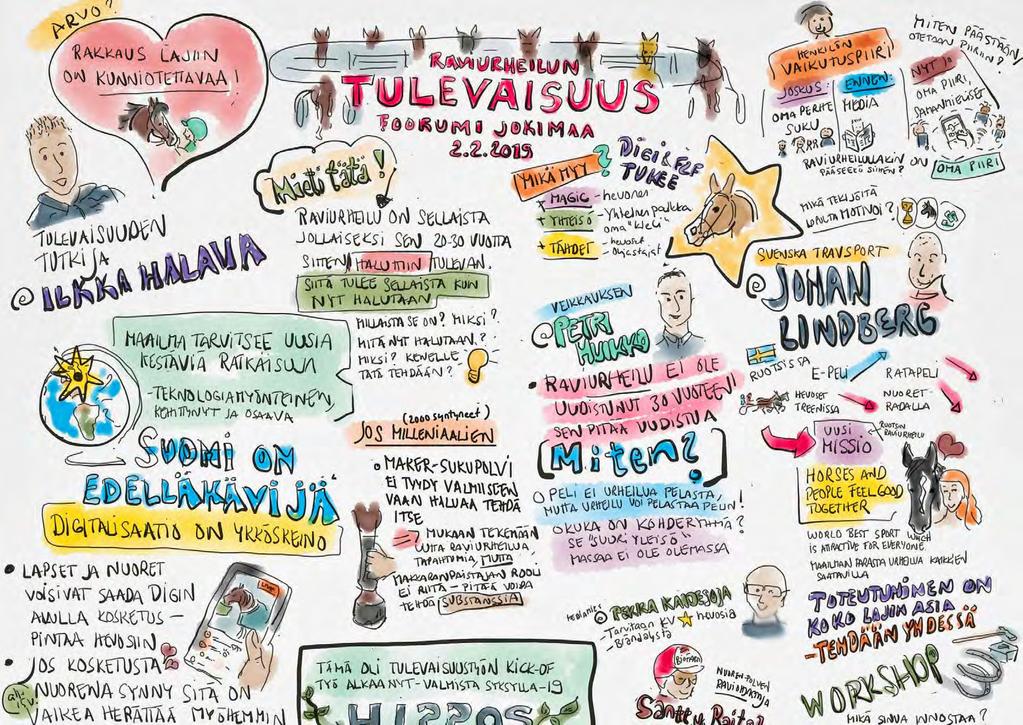 ARVO?
RAKKAUS LAJIIN
ON KUNNIOTETTAVAA!
RAVIURHEILUN
TULEVAISUUS
FOORUMI JOKIMAA
2.2.2019
TULEVAISUUDEN
TUTKIJA
@ ILKKA HALAVA
Mieti tätä!
RAVIURHEILU ON SELLAISTA
JOLLAISEKSI SEN 20-30 VUOTTA
SITTEN HALUTTIIN TULEVAN.
SIITÄ TULEE SELLAISTA KUIN
NYT HALUTAAN
MILLAISTA SE ON? MIKSI?
MITÄ NYT HALUTAAN?
MIKSI? KENELLE
TÄTÄ TEHDÄÄN?
MAAILMA TARVITSEE UUSIA
KESTÄVIÄ RATKAISUJA
-TEKNOLOGIAMYÖNTEINEN,
KEHITTYNYT JA OSAAVA
SUOMI ON
EDELLÄKÄVIJÄ
DIGITALISAATIO ON YKKÖSKEINO
• LAPSET JA NUORET
VOISIVAT SAADA DIGIN
AVULLA KOSKETUS-
PINTAA HEVOSIIN
• JOS KOSKETUSTA
NUORENA SYNNY SITÄ ON
VAIKEA HERÄTTÄÄ MYÖHEMMIN
LIVE
(2000 syntyneet)
JOS MILLENIAALIEN
o MAKER-SUKUPOLVI
EI TYYDY VALMIISEEN
VAAN HALUAA TEHDÄ
ITSE
MUKAAN TEKEMÄÄN
UUTTA RAVIURHEILUA,
TAPAHTUMIA, MUTTA
MAKKARANPAISTAJAN ROOLI
EI RIITÄ - PITÄÄ VOIDA
TEHDÄ SUBSTANSSIA
TÄMÄ OLI TULEVAISUUSTYÖN KICK-OF
TYÖ ALKAA NYT-VALMISTA SYKSYLLÄ-19
HIPPOS
MIKÄ MYY?
DIGI & F2F
TUKEE
+ MAGIC - hevonen
+ YHTEISÖ - Yhteinen paikka
oma "kieli"
+ TÄHDET - hevoset
- Ohjastajat
VEIKKAUKSEN
@ PETRI
HUIKKO
• RAVIURHEILU EI OLE
UUDISTUNUT 30 VUOTEEN
SEN PITÄÄ UUDISTUA
[Miten?]
o PELI EI URHEILUA PELASTA,
MUTTA URHEILU VOI PELASTAA PELIN!
o KUKA ON KOHDERYHMÄ?
SE "SUURI YLEISÖ"
MASSAA EI OLE OLEMASSA
@ PEKKA KAIDESOJA
- Tarvitaan KV hevosia
- Brändäystä
NUOREN POLVEN
RAVIOHJASTAJA
Santtu Raitala
HENKILÖN
VAIKUTUSPIIRI
MITEN PÄÄSTÄÄN
OTETAAN PIIRIIN?
JOSKUS:
OMA PERHE
SUKU
ENNEN:
MEDIA
NYT JA
OMA PIIRI,
SAMANMIELISET
RAVIURHEILULLAKIN ON OMA PIIRI
PÄÄSEEKÖ SIIHEN?
MIKÄ TEKIJÖITÄ
MOTIVOI?
SVENSKA TRAVSPORT
@ JOHAN
LINDBERG
RUOTSISSA
E-PELI
RATAPELI
HEVOSET
TREENISSA
NUORET
RADALLA
UUSI
MISSIO
RUOTSIN
RAVIURHEILU
HORSES AND
PEOPLE FEEL GOOD
TOGETHER
WORLD BEST SPORT WHICH
IS ATTRACTIVE FOR EVERYONE
MAAILMAN PARASTA URHEILUA KAIKKIEN
SAATAVILLA
TOTEUTUMINEN ON
KOKO LAJIN ASIA
- TEHDÄÄN YHDESSÄ
WORKSHOP
MIKÄ SINUA INNOSTAA?